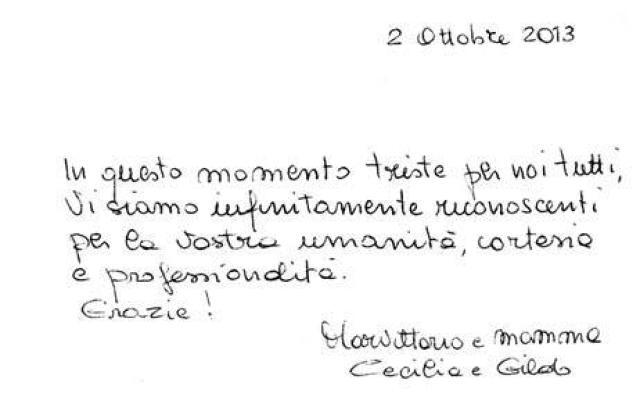 2 Ottobre 2013
In questo momento triste per noi tutti,
Vi siamo infinitamente riconoscenti
per la vostra umanità, cortesia
e professionalità.
Grazie!
e mamma
Cecilia e Gildo